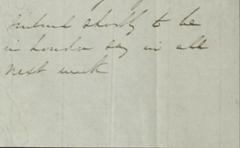 intend shortly to be
in London say in all
next week